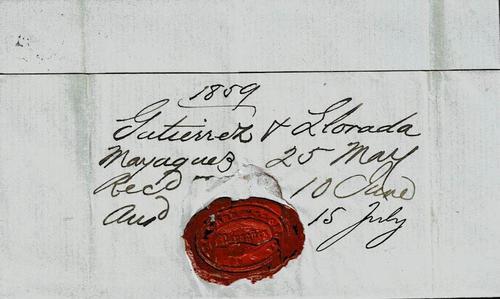 1859
Gutierrez & Llorada
Mayaguez 25 May
Rec'd 10 June
Ans'd 15 July